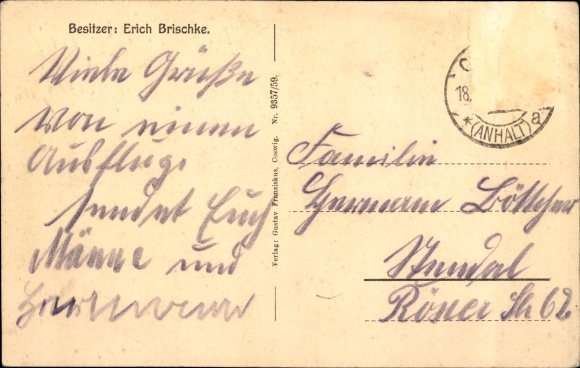 Besitzer: Erich Brischke.
Viele Grüße
von einen
Ausfluge
sendet Euch
Männe und
Verlag: Gustav Franziskus, Coswig. Nr. 9357/59.
C
18.
* (ANHALT) a
Familie
Hermann Böttcher
Stendal
Röxer Str 62